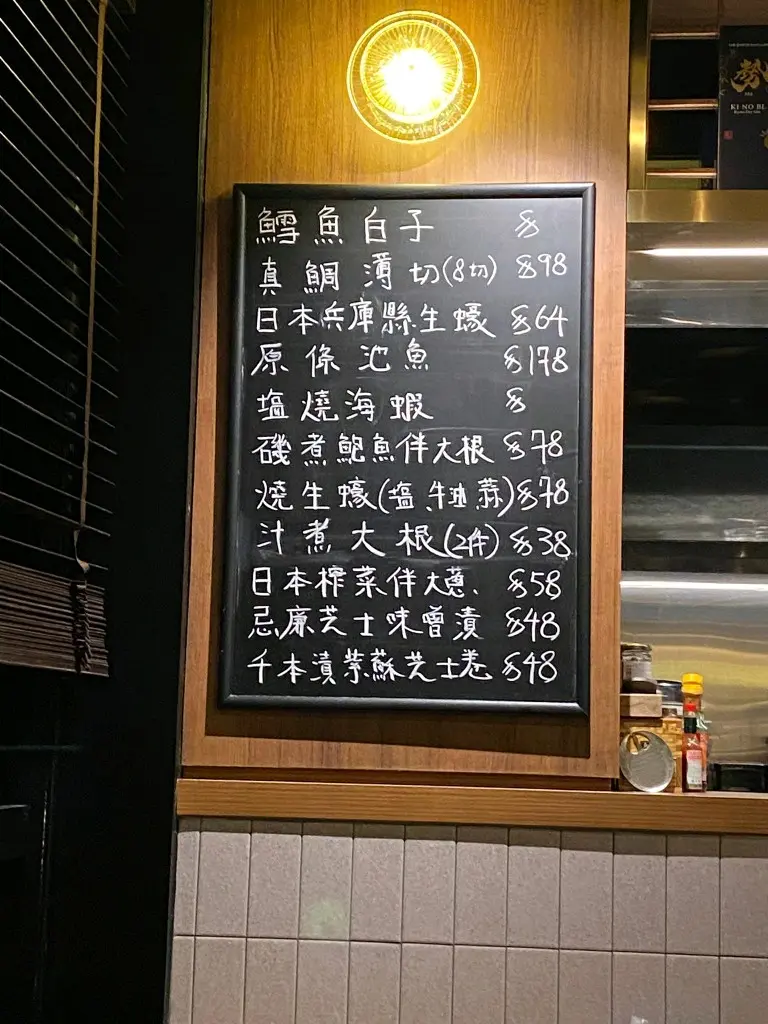 鱈魚白子 $
真鯛薄切(8切) $98
日本兵庫縣生蠔 $64
原條池魚 $178
塩燒海蝦 $
磯煮鮑魚伴大根 $78
燒生蠔(塩、牛油、蒜) $78
汁煮大根(2件) $38
日本榨菜伴大蔥 $58
忌廉芝士味噌漬 $48
千本漬紫蘇芝士卷 $48
勢
KI NO BI